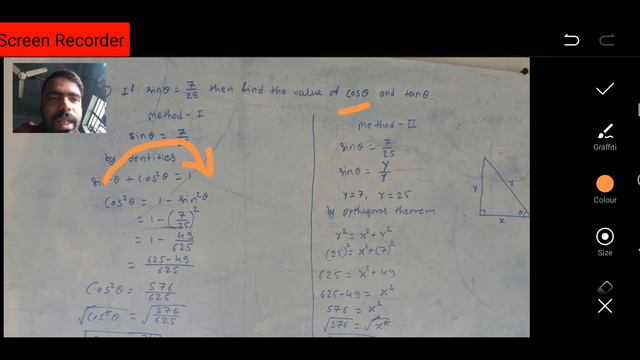 Screen Recorder
If sinθ = 7/25 then find the value of cosθ and tanθ
Method - I
sinθ = 7
by identities
sin²θ + cos²θ = 1
cos²θ = 1 - sin²θ
= 1 - (7/25)²
= 1 - 49/625
= 625-49/625
Cos²θ = 576/625
√cos²θ = √576/625
Method - II
sinθ = 7/25
sinθ = y/r
y=7, r=25
by pythagoras theorem
r² = x² + y²
(25)² = x² + (7)²
625 = x² + 49
625-49 = x²
576 = x²
√576 = √x²
y
r
x
θ
Graffiti
Colour
Size